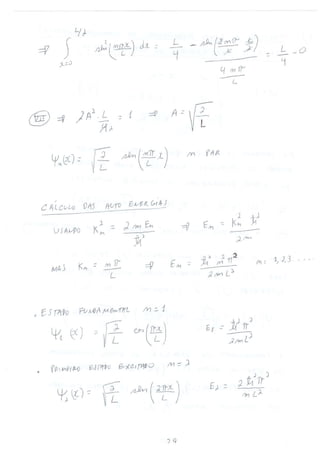 ⇒ ∫_{x=0}^{L/2} sen²(nπx/L) dx = L/4 - sen(2nπ/L · L/2) / (4nπ/L) = L/4 - 0
(VII) ⇒ 2A² L/4 = 1 ⇒ A = √(2/L)
Ψₙ(x) = √(2/L) sen(nπ/L x) n PAR
CALCULO DAS AUTO ENERGIAS
USANDO Kₙ² = 2mEₙ/ħ² ⇒ Eₙ = Kₙ² ħ²/2m
MAS Kₙ = nπ/L ⇒ Eₙ = ħ² n² π²/2mL² n = 1, 2, 3 ....
. ESTADO FUNDAMENTAL n = 1
Ψ₁(x) = √(2/L) cos(πx/L) E₁ = ħ² π²/2mL²
. PRIMEIRO ESTADO EXCITADO n = 2
Ψ₂(x) = √(2/L) sen(2πx/L) E₂ = 2 ħ² π²/mL²